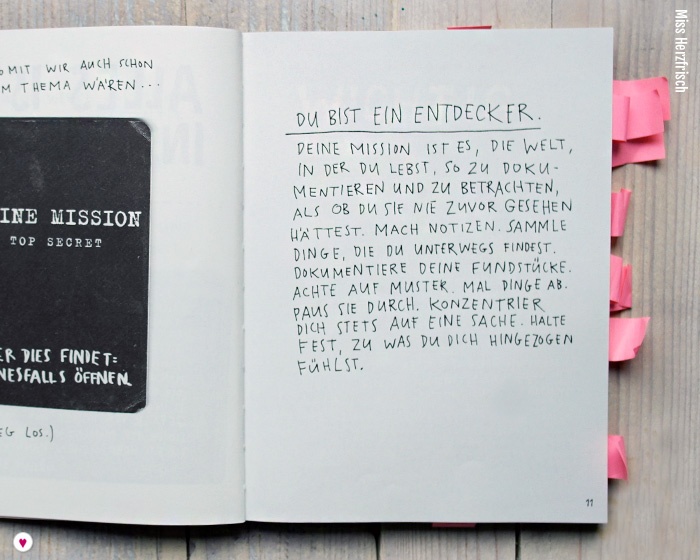 MIT WIR AUCH SCHON
M THEMA WÄREN...
INE MISSION
TOP SECRET
ER DIES FINDET:
NESFALLS ÖFFNEN.
EG LOS.)
DU BIST EIN ENTDECKER.
DEINE MISSION IST ES, DIE WELT,
IN DER DU LEBST, SO ZU DOKU-
MENTIEREN UND ZU BETRACHTEN,
ALS OB DU SIE NIE ZUVOR GESEHEN
HÄTTEST. MACH NOTIZEN. SAMMLE
DINGE, DIE DU UNTERWEGS FINDEST.
DOKUMENTIERE DEINE FUNDSTÜCKE.
ACHTE AUF MUSTER. MAL DINGE AB.
PAUS SIE DURCH. KONZENTRIER
DICH STETS AUF EINE SACHE. HALTE
FEST, ZU WAS DU DICH HINGEZOGEN
FÜHLST.
11
Miss Herzfrisch